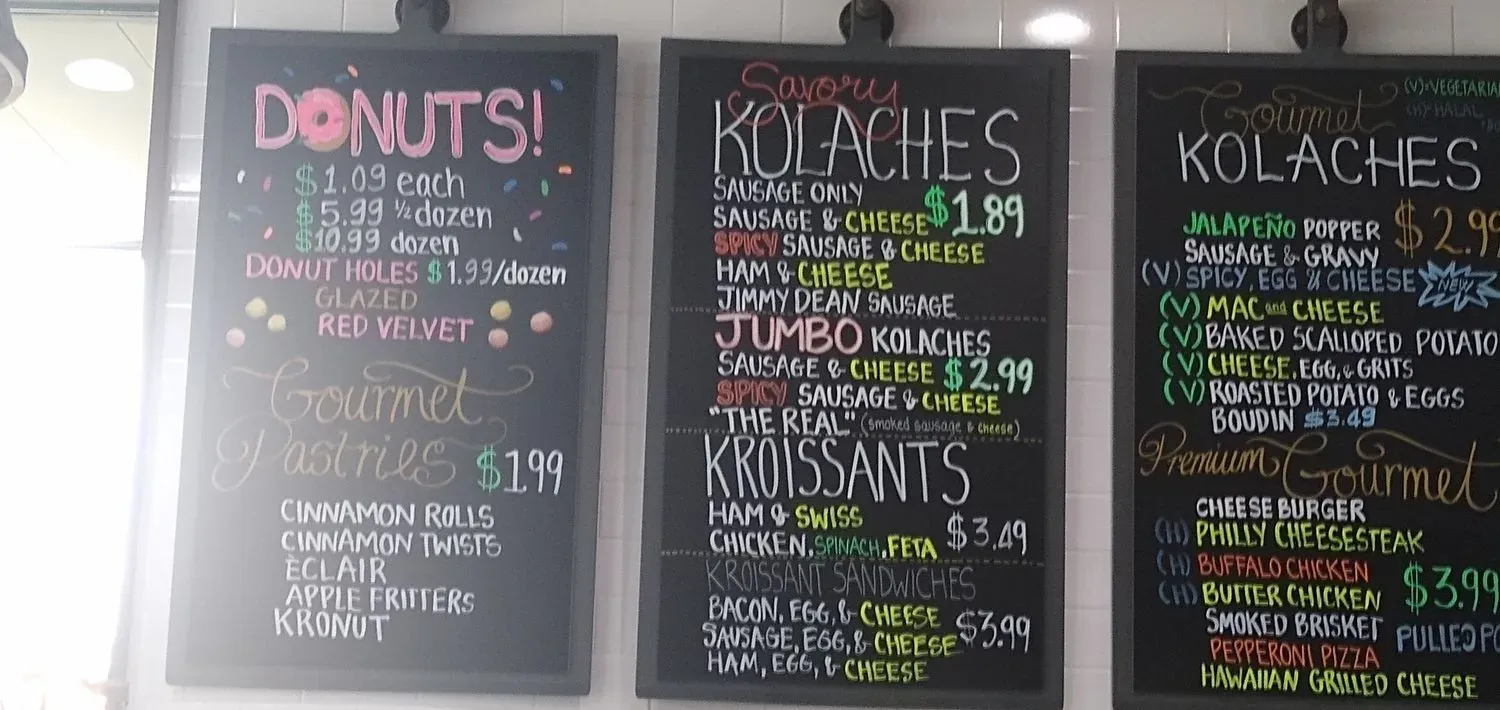 DONUTS!
$1.09 each
$5.99 ½ dozen
$10.99 dozen
DONUT HOLES $1.99/dozen
GLAZED
RED VELVET
Gourmet
Pastries $1.99
CINNAMON ROLLS
CINNAMON TWISTS
ÈCLAIR
APPLE FRITTERS
KRONUT
Savory
KOLACHES
SAUSAGE ONLY
SAUSAGE & CHEESE $1.89
SPICY SAUSAGE & CHEESE
HAM & CHEESE
JIMMY DEAN SAUSAGE
JUMBO KOLACHES
SAUSAGE & CHEESE $2.99
SPICY SAUSAGE & CHEESE
"THE REAL" (smoked sausage & cheese)
KROISSANTS
HAM & SWISS
CHICKEN, SPINACH, FETA $3.49
KROISSANT SANDWICHES
BACON, EGG, & CHEESE
SAUSAGE, EGG, & CHEESE $3.99
HAM, EGG, & CHEESE
(V)=VEGETARIAN
(H)=HALAL
Gourmet
KOLACHES
JALAPEÑO POPPER $2.99
SAUSAGE & GRAVY
(V) SPICY, EGG & CHEESE NEW
(V) MAC and CHEESE
(V) BAKED SCALLOPED POTATO
(V) CHEESE, EGG, & GRITS
(V) ROASTED POTATO & EGGS
BOUDIN $3.49
Premium Gourmet
CHEESE BURGER
(H) PHILLY CHEESESTEAK
(H) BUFFALO CHICKEN
(H) BUTTER CHICKEN $3.99
SMOKED BRISKET PULLED
PEPPERONI PIZZA
HAWAIIAN GRILLED CHEESE